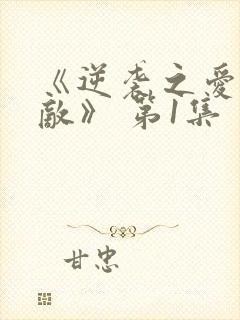 《逆袭之爱
敵》 第1集
甘忠